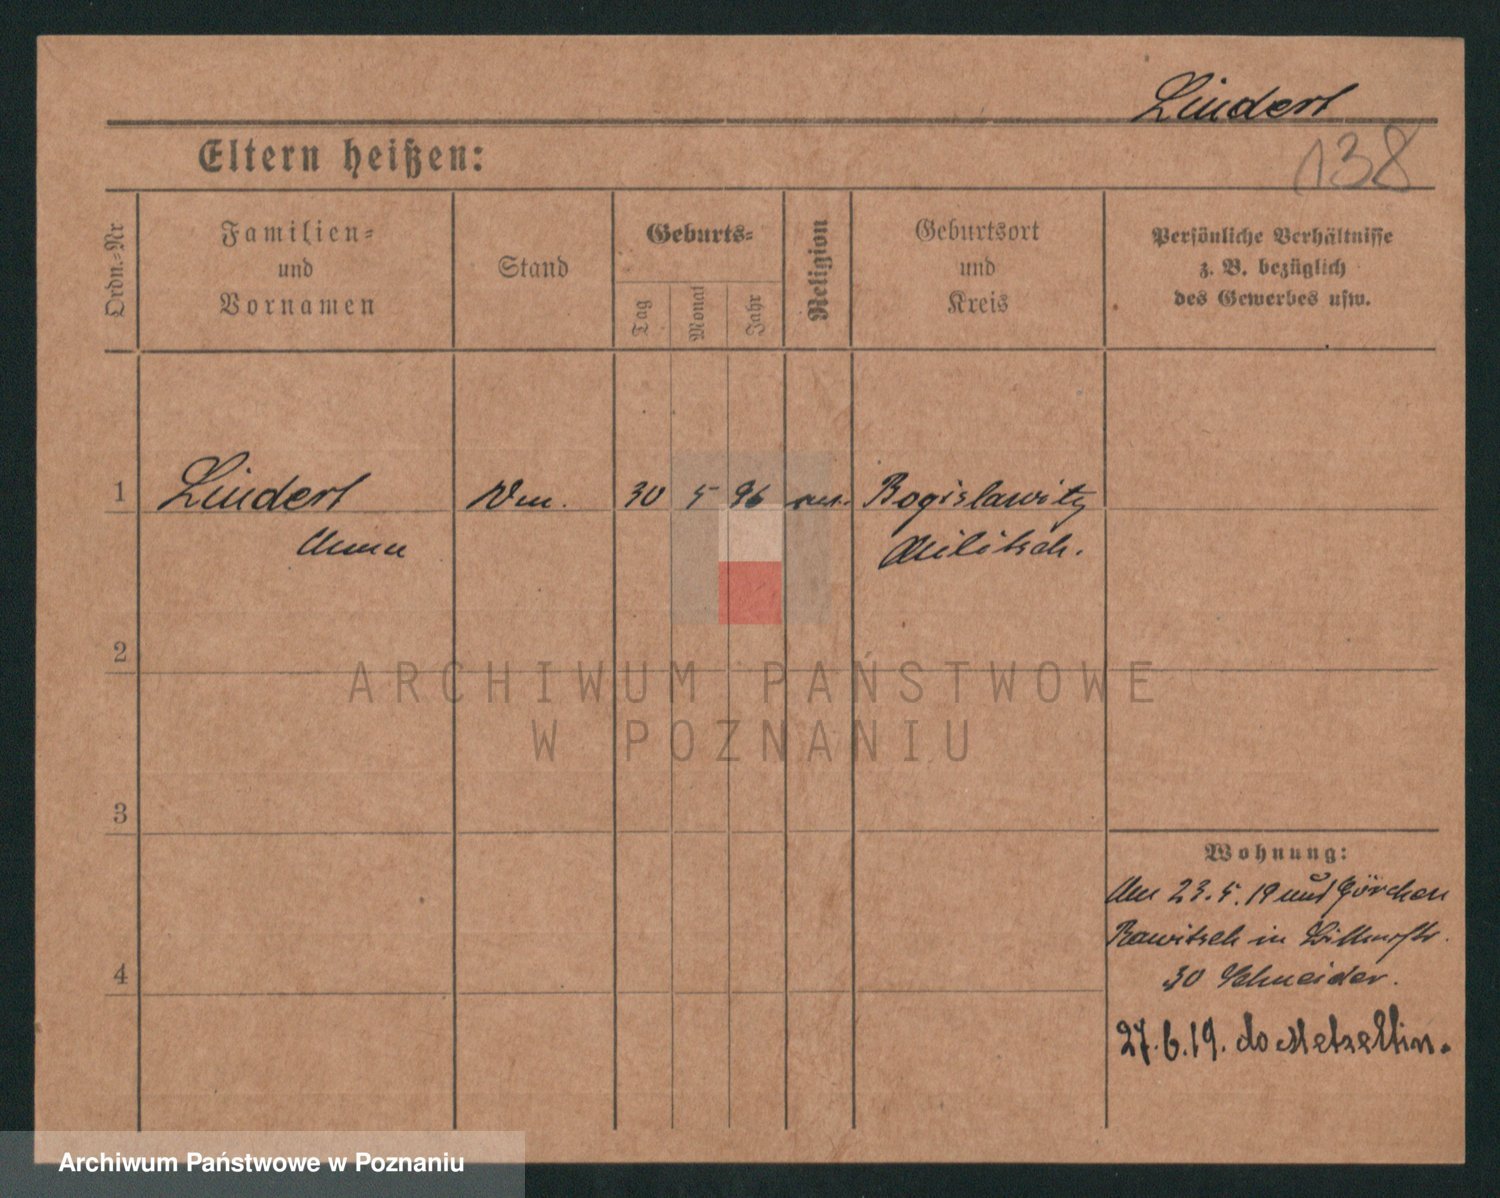 Lindert
138
Eltern heißen:
Ordn.=Nr
Familien=
und
Vornamen
Stand
Geburts=
Tag
Monat
Jahr
Religion
Geburtsort
und
Kreis
Persönliche Verhältnisse
z. B. bezüglich
des Gewerbes usw.
1 Lindert 30 5 96 Bogislawitz
Militsch.
2
ARCHIWUM PAŃSTWOWE
W POZNANIU
3
Wohnung:
23.5.19 Görchen
Rawitsch in
30 Schneider.
4
27.6.19. do Metzeltin.
Archiwum Państwowe w Poznaniu